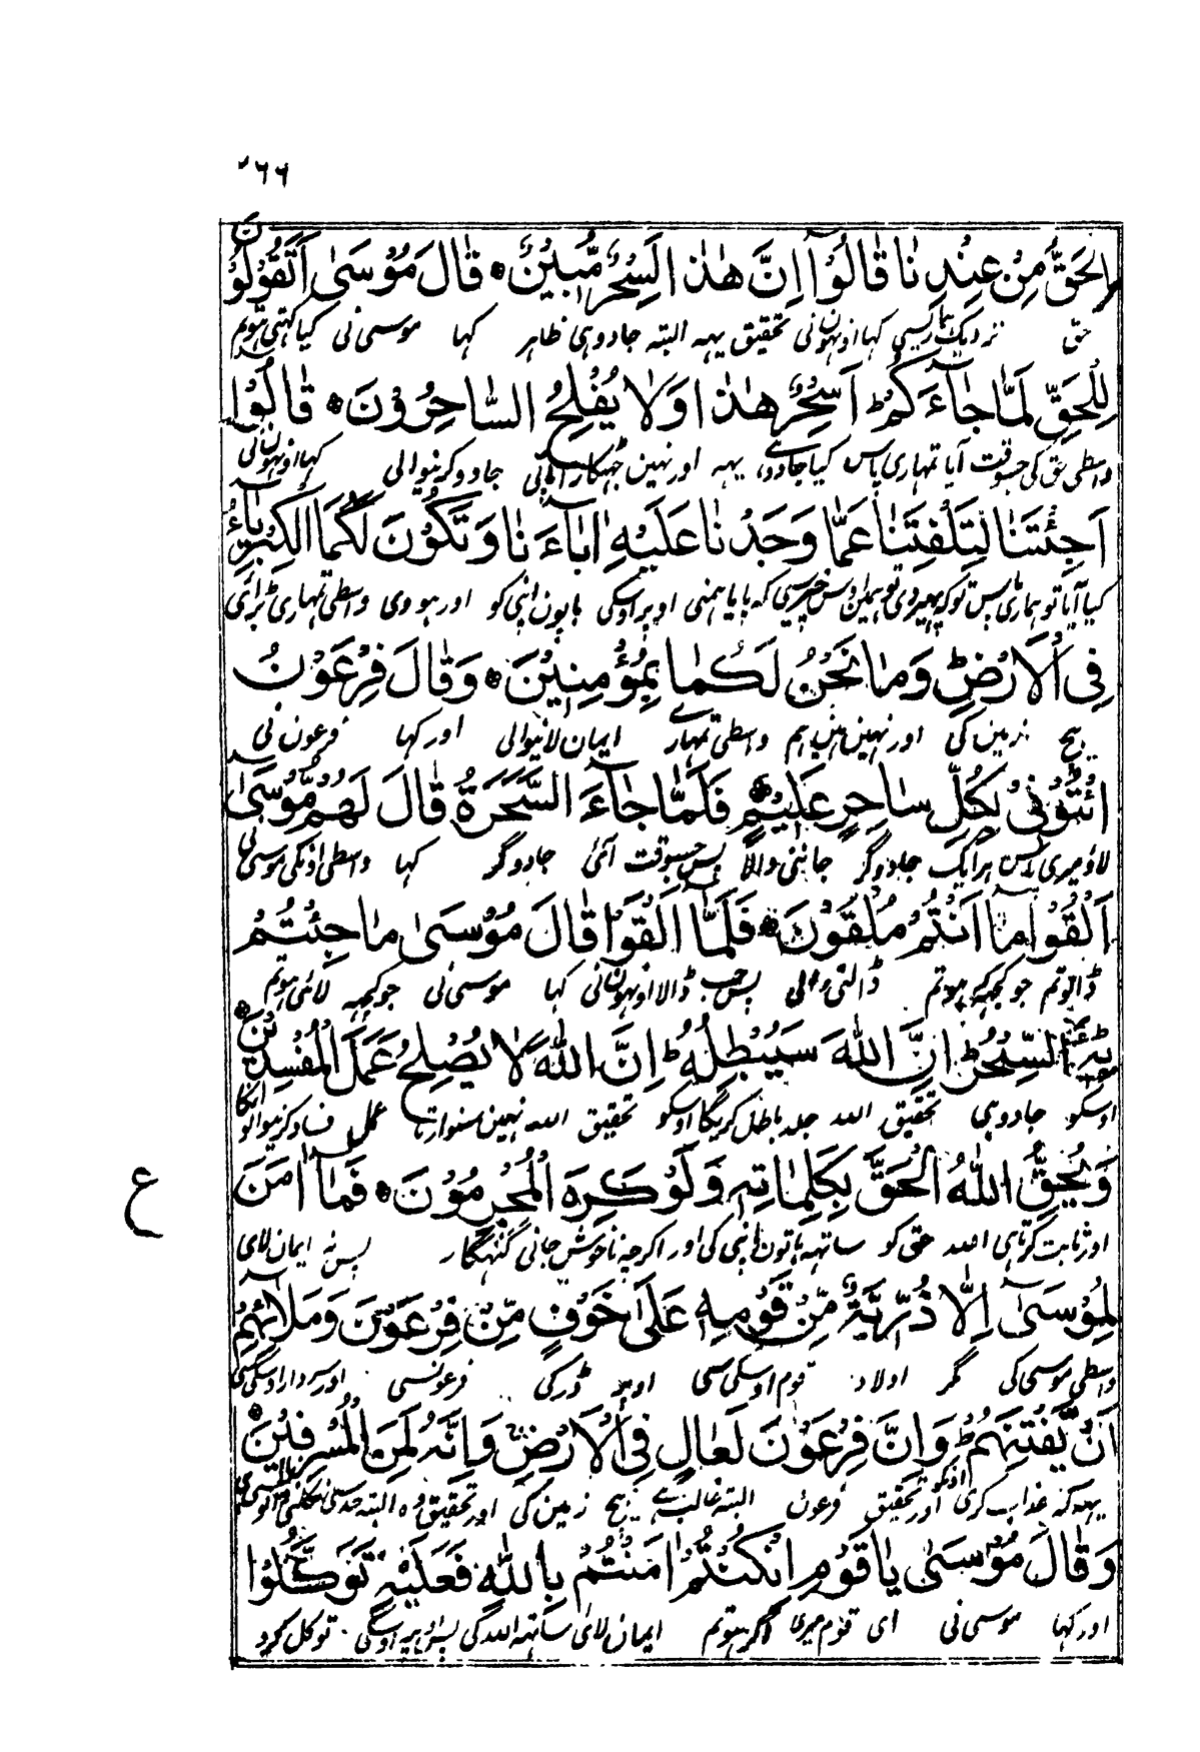 ٢٦٦
الْحَقُّ مِنْ عِنْدِنَا قَالُوْآ اِنَّ هٰذَا لَسِحْرٌ مُّبِيْنٌ ۝ قَالَ مُوْسٰى اَتَقُوْلُوْنَ
حق نزدیک ہماریسی کہا اونہون نی تحقیق یہہ البتہ جادو ہی ظاہر کہا موسی نی کیا کہتی ہو تم
لِلْحَقِّ لَمَّا جَآءَكُمْ ط اَسِحْرٌ هٰذَا وَلَا يُفْلِحُ السَّاحِرُوْنَ ۝ قَالُوْٓا
واسطی حق کی جسوقت آیا تمہاری پاس کیا جادو ہے یہہ اور نہین چہٹکارا پاتی جادو کرنیوالی کہا اونہون نی
اَجِئْتَنَا لِتَلْفِتَنَا عَمَّا وَجَدْنَا عَلَيْهِ اٰبَآءَنَا وَتَكُوْنَ لَكُمَا الْكِبْرِيَآءُ
کیا آیا تو ہماری پاس تو کہ پہیر دی تو ہمکو اوس چیز سی کہ پایا ہمنی اوپر اوسکی باپون اپنی کو اور ہووی واسطی تمہاری بڑائی
فِى الْاَرْضِ ط وَمَا نَحْنُ لَكُمَا بِمُؤْمِنِيْنَ ۝ وَقَالَ فِرْعَوْنُ
بیچ زمین کی اور نہین ہین ہم واسطی تمہارے ایمان لانیوالی اور کہا فرعون نی
ائْتُوْنِىْ بِكُلِّ سَاحِرٍ عَلِيْمٍ ۝ فَلَمَّا جَآءَ السَّحَرَةُ قَالَ لَهُمْ مُّوْسٰىٓ
لاؤ میری پاس ہر ایک جادوگر جاننی والا پس جسوقت آئی جادوگر کہا واسطی اونکی موسی نی
اَلْقُوْا مَآ اَنْتُمْ مُّلْقُوْنَ ۝ فَلَمَّآ اَلْقَوْا قَالَ مُوْسٰى مَا جِئْتُمْ
ڈالو تم جو کچہہ کہ ہو تم ڈالنی والی پس جب ڈالا اونہون نی کہا موسی نی جو کچہہ لائی ہو تم
بِهِ السِّحْرُ ط اِنَّ اللّٰهَ سَيُبْطِلُهٗ ط اِنَّ اللّٰهَ لَا يُصْلِحُ عَمَلَ الْمُفْسِدِيْنَ ۝
اوسکو جادو ہی تحقیق اللہ جلد باطل کریگا اوسکو تحقیق اللہ نہین سنوارتا عمل فساد کرنیوالونکا
وَيُحِقُّ اللّٰهُ الْحَقَّ بِكَلِمَاتِهٖ وَلَوْ كَرِهَ الْمُجْرِمُوْنَ ۝ فَمَآ اٰمَنَ
اور ثابت کرتا ہی اللہ حق کو ساتہہ باتون اپنی کی اور اگرچہ ناخوش جانی گنہگار پس نہ ایمان لای
ع
لِمُوْسٰىٓ اِلَّا ذُرِّيَّةٌ مِّنْ قَوْمِهٖ عَلٰى خَوْفٍ مِّنْ فِرْعَوْنَ وَمَلَا۟ئِهِمْ
واسطی موسی کی مگر اولاد قوم اوسکی سی اوپر ڈر کی فرعونسی اور سردار اوسکی سی
اَنْ يَّفْتِنَهُمْ ط وَاِنَّ فِرْعَوْنَ لَعَالٍ فِى الْاَرْضِ وَاِنَّهٗ لَمِنَ الْمُسْرِفِيْنَ ۝
یہہ کہ عذاب کری اونکو اور تحقیق فرعون البتہ غالب ہے بیچ زمین کی اور تحقیق وہ البتہ حد سی نکلنی والونسی ہی
وَقَالَ مُوْسٰى يٰقَوْمِ اِنْ كُنْتُمْ اٰمَنْتُمْ بِاللّٰهِ فَعَلَيْهِ تَوَكَّلُوْٓا
اور کہا موسی نی ای قوم میری اگر ہو تم ایمان لای ساتہہ اللہ کی پس اوپر اوسکی توکل کرو